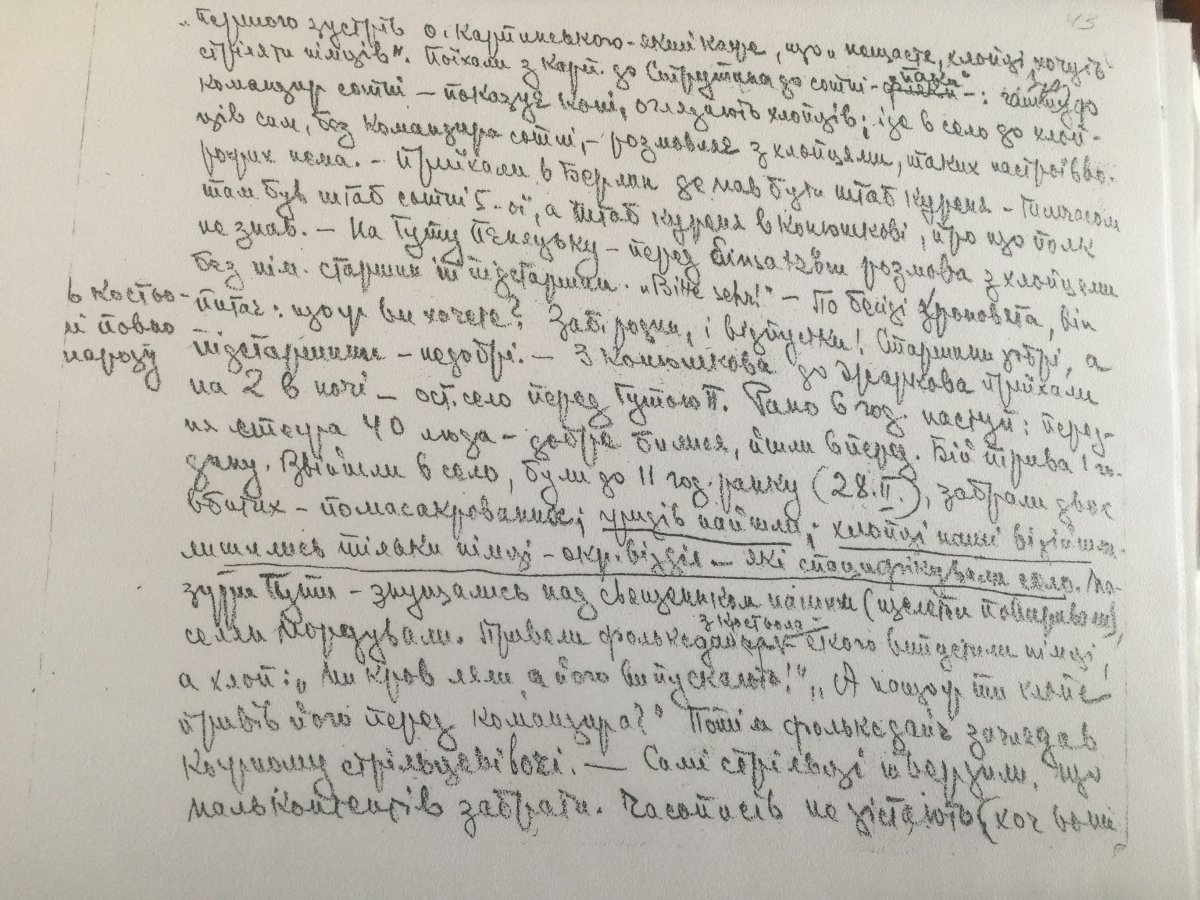 43
„Першого зустрів о. Картинського - який каже, що „нещастє, хлопці хочуть
стріляти німців". Поїхали з Карп. до Струтина до сотні -
командир сотні - показує коні, оглядають хлопців; іде в село до хлоп-
ців сам, без командира сотні, - розмовляє з хлопцями, таких настроїв во-
рожих нема. - Приїхали в Берлин де мав бути штаб куреня - Тимчасом
там був штаб сотні 5-ої, а штаб куреня в Конюшкові, про що полк
не знав. - На Гуту Пеняцьку - перед розмова з хлопцями
без нім. старшин і підстаршин. „Bitte sehr!" - По бесіді Хроновята, він
питає: щоу ви хочете? Заб і відпустки! Старшини добрі, а
в костьо-
лі повно
народу
підстаршини - недобрі. - З Конюшкова до Жаркова приїхали
на 2 в ночі - ост. село перед Гутою П. Рано 6 год. наступ: перед-
ня стежа 40 люда - добре билися, йшли вперед. Бій трива 1 го-
дину. Ввійшли в село, були до 11 год. ранку (28.II), забрали двох
вбитих - помасакрованих; найшли; хлопці наші відійшли.
лишились тільки німці - окр. відділ - які спацифікували село. Ма-
зури Гути - знущались над священиком нашим (
селян мордували. Привели фольксдойча з костьола - якого випустили німці,
а хлоп: „Ми кров ляли, а його випускають!" „А нащоу ти хлопе
привів його перед командира?" Потім фольксдойч заглядав
кожному стрільцеві в очі. - Самі стрільці твердили, що
малькотентів забрати. Часописів не дістають (хоч вони